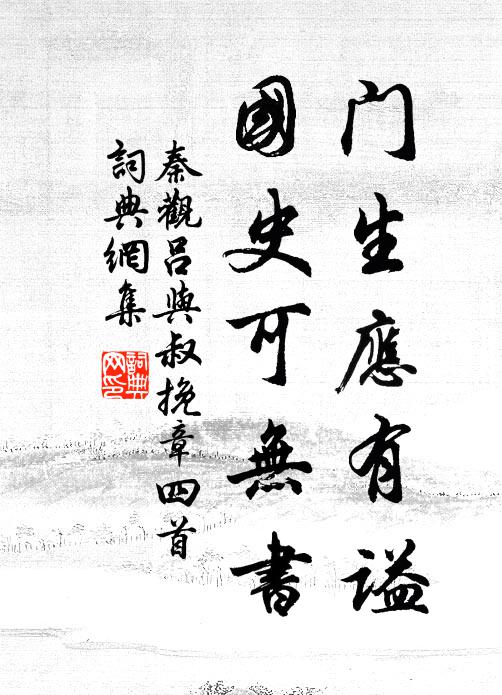 门生應有謚
國史可無書
秦觀呂與叔挽章四首
詞典網集
詞典網印